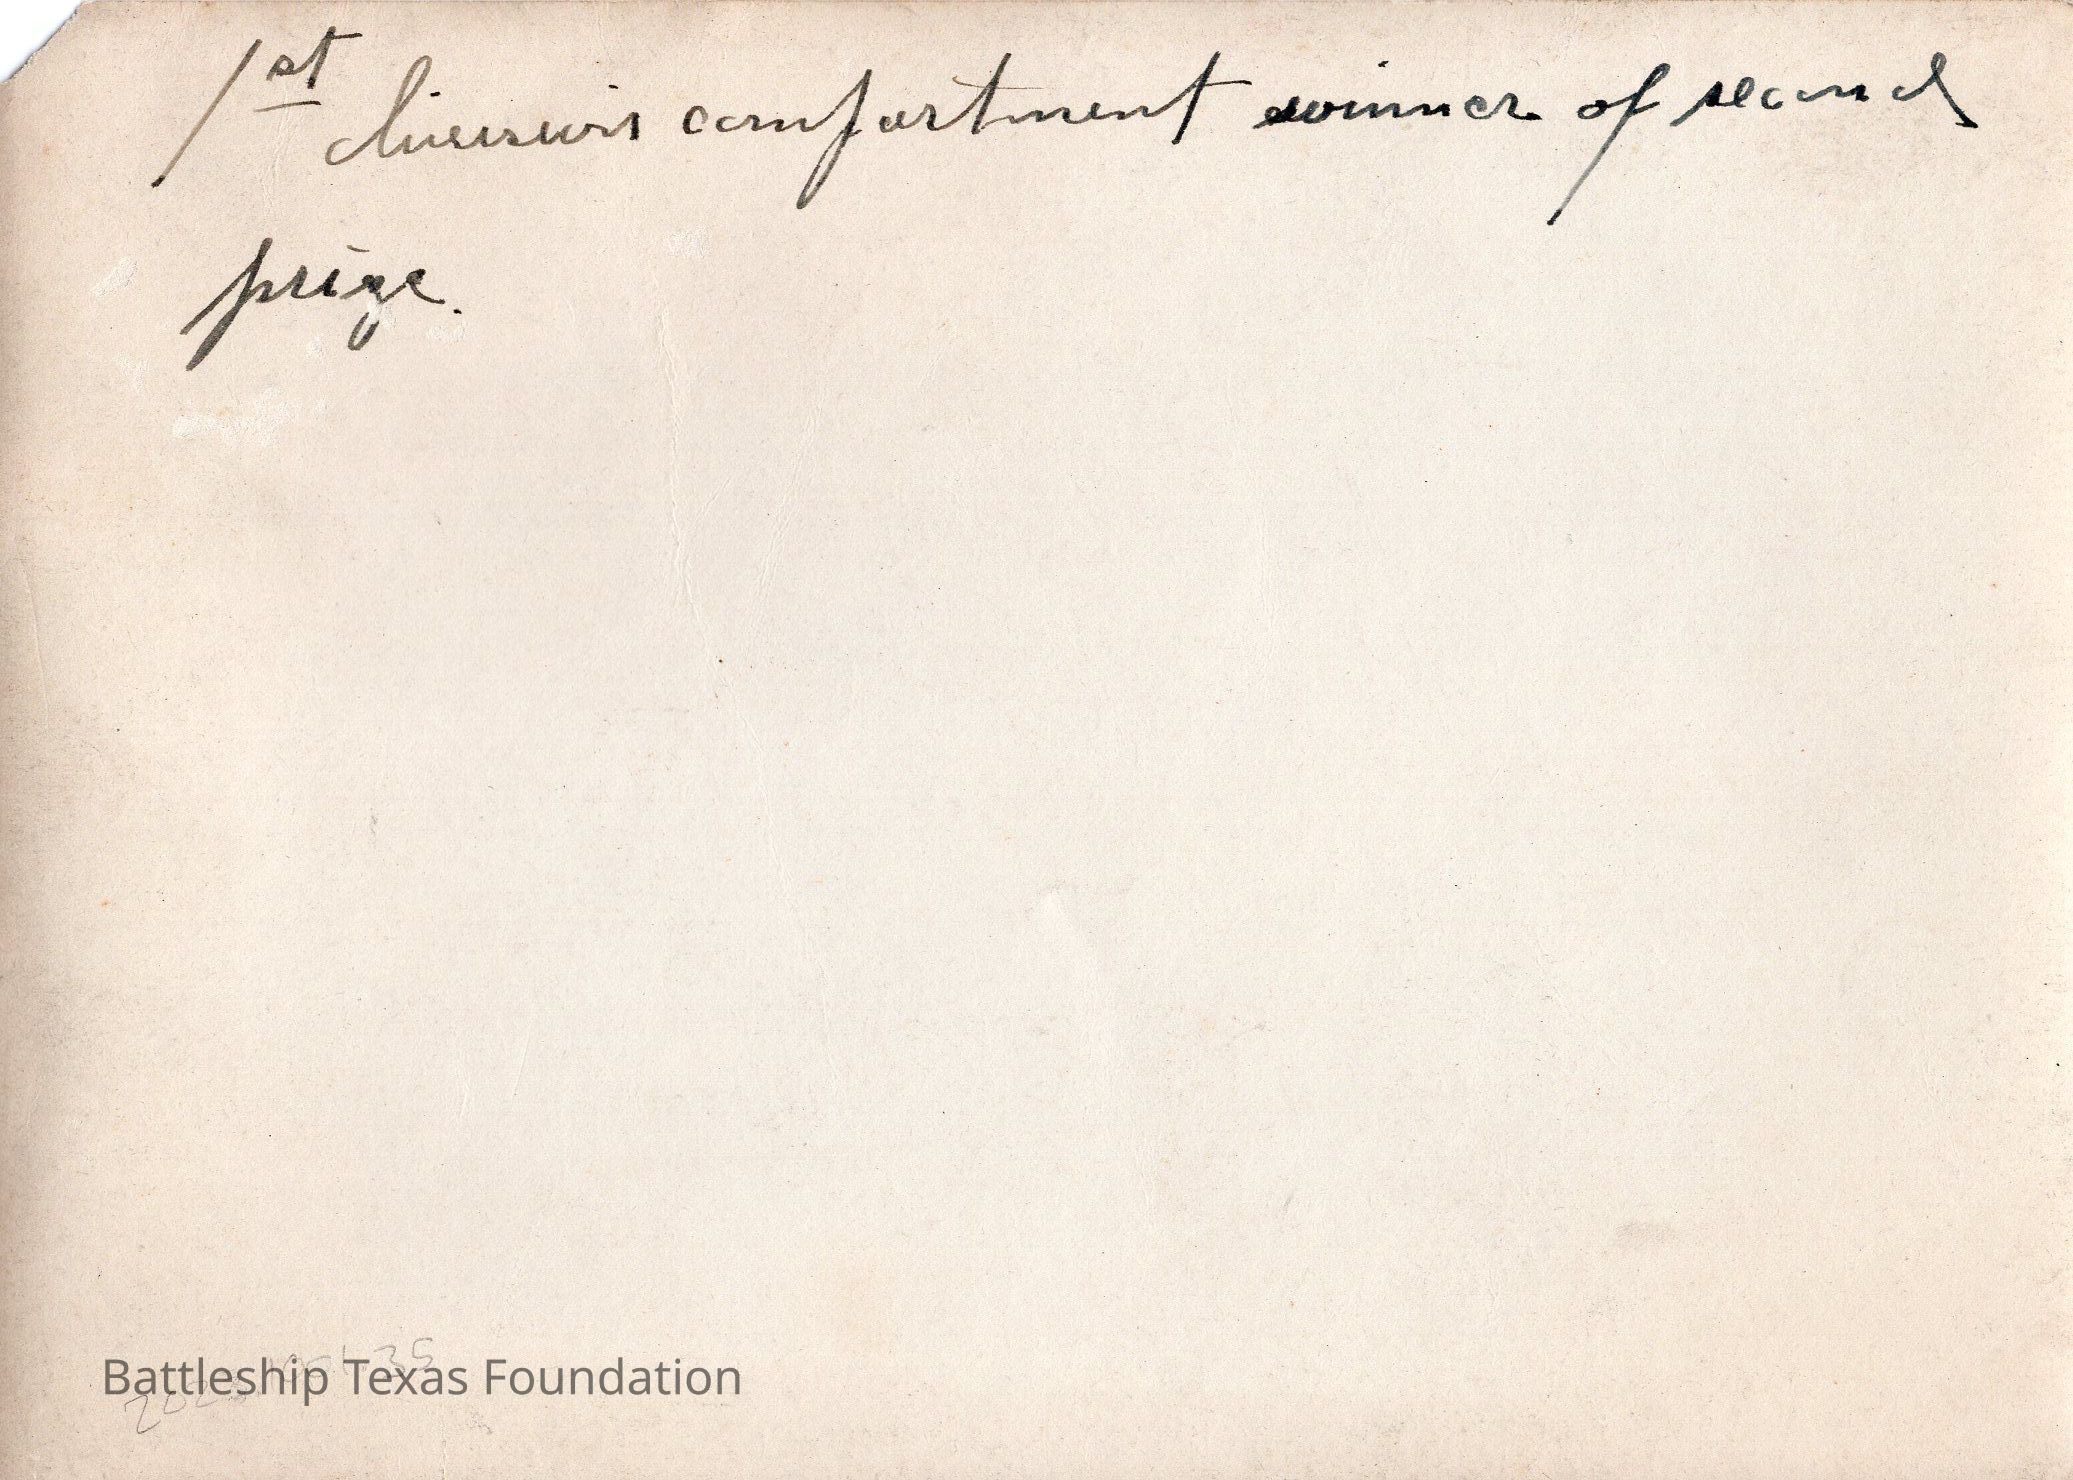 1st division comfortment winner of second
prize.
Battleship Texas Foundation